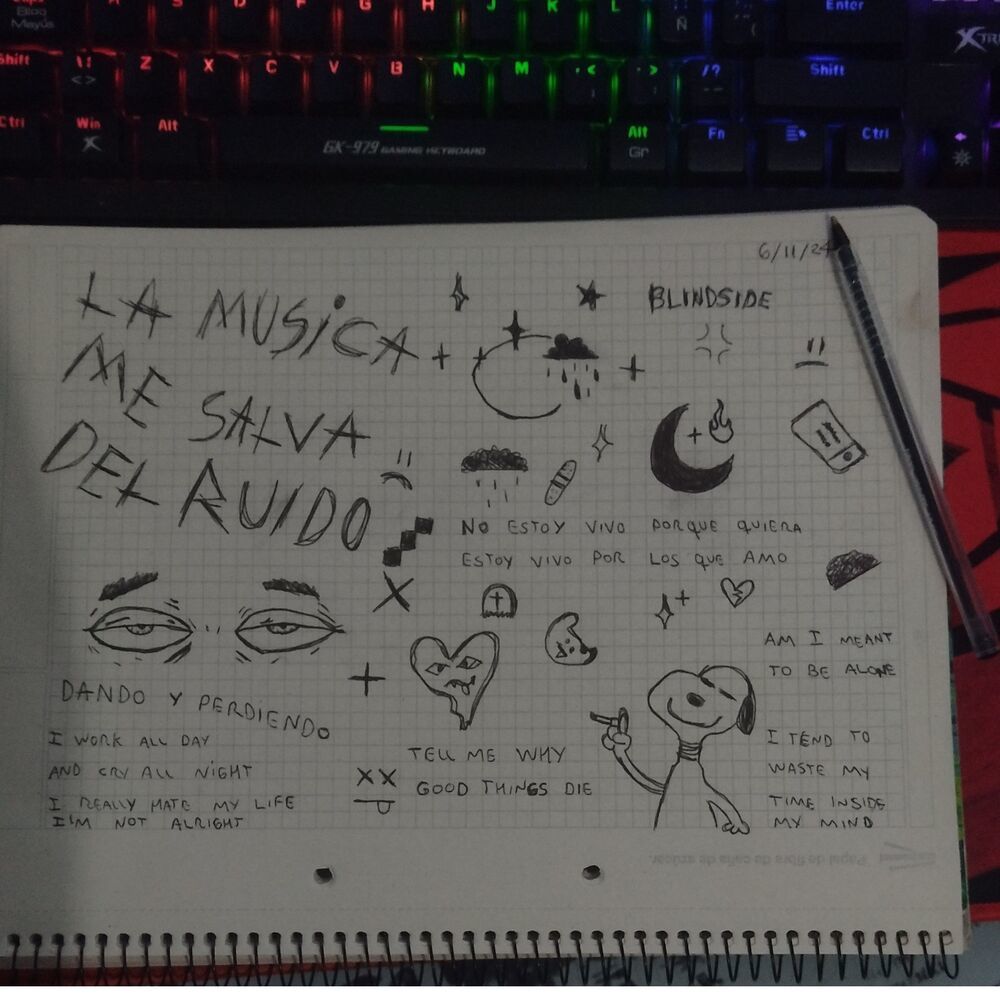 Bloq
Mayús
A S D F G H J K L Ñ Enter
Shift Z X C V B N M Shift
Ctrl Win Alt Alt Gr Fn Ctrl
GK-979 GAMING KEYBOARD
6/11/24
LA MUSICA
ME SALVA
DEL RUIDO
BLINDSIDE
NO ESTOY VIVO PORQUE QUIERA
ESTOY VIVO POR LOS QUE AMO
AM I MEANT
TO BE ALONE
DANDO Y PERDIENDO
I WORK ALL DAY
AND CRY ALL NIGHT
I REALLY HATE MY LIFE
I'M NOT ALRIGHT
TELL ME WHY
GOOD THINGS DIE
I TEND TO
WASTE MY
TIME INSIDE
MY MIND
Papel de fibra de caña de azúcar